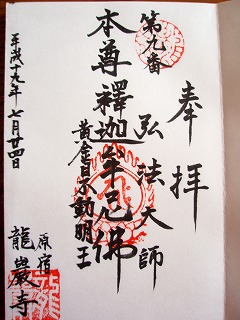 奉拝
第九番
弘法大師
本尊釋迦牟尼佛
黄金目不動明王
原宿
龍巖寺
平成十九年七月廿四日